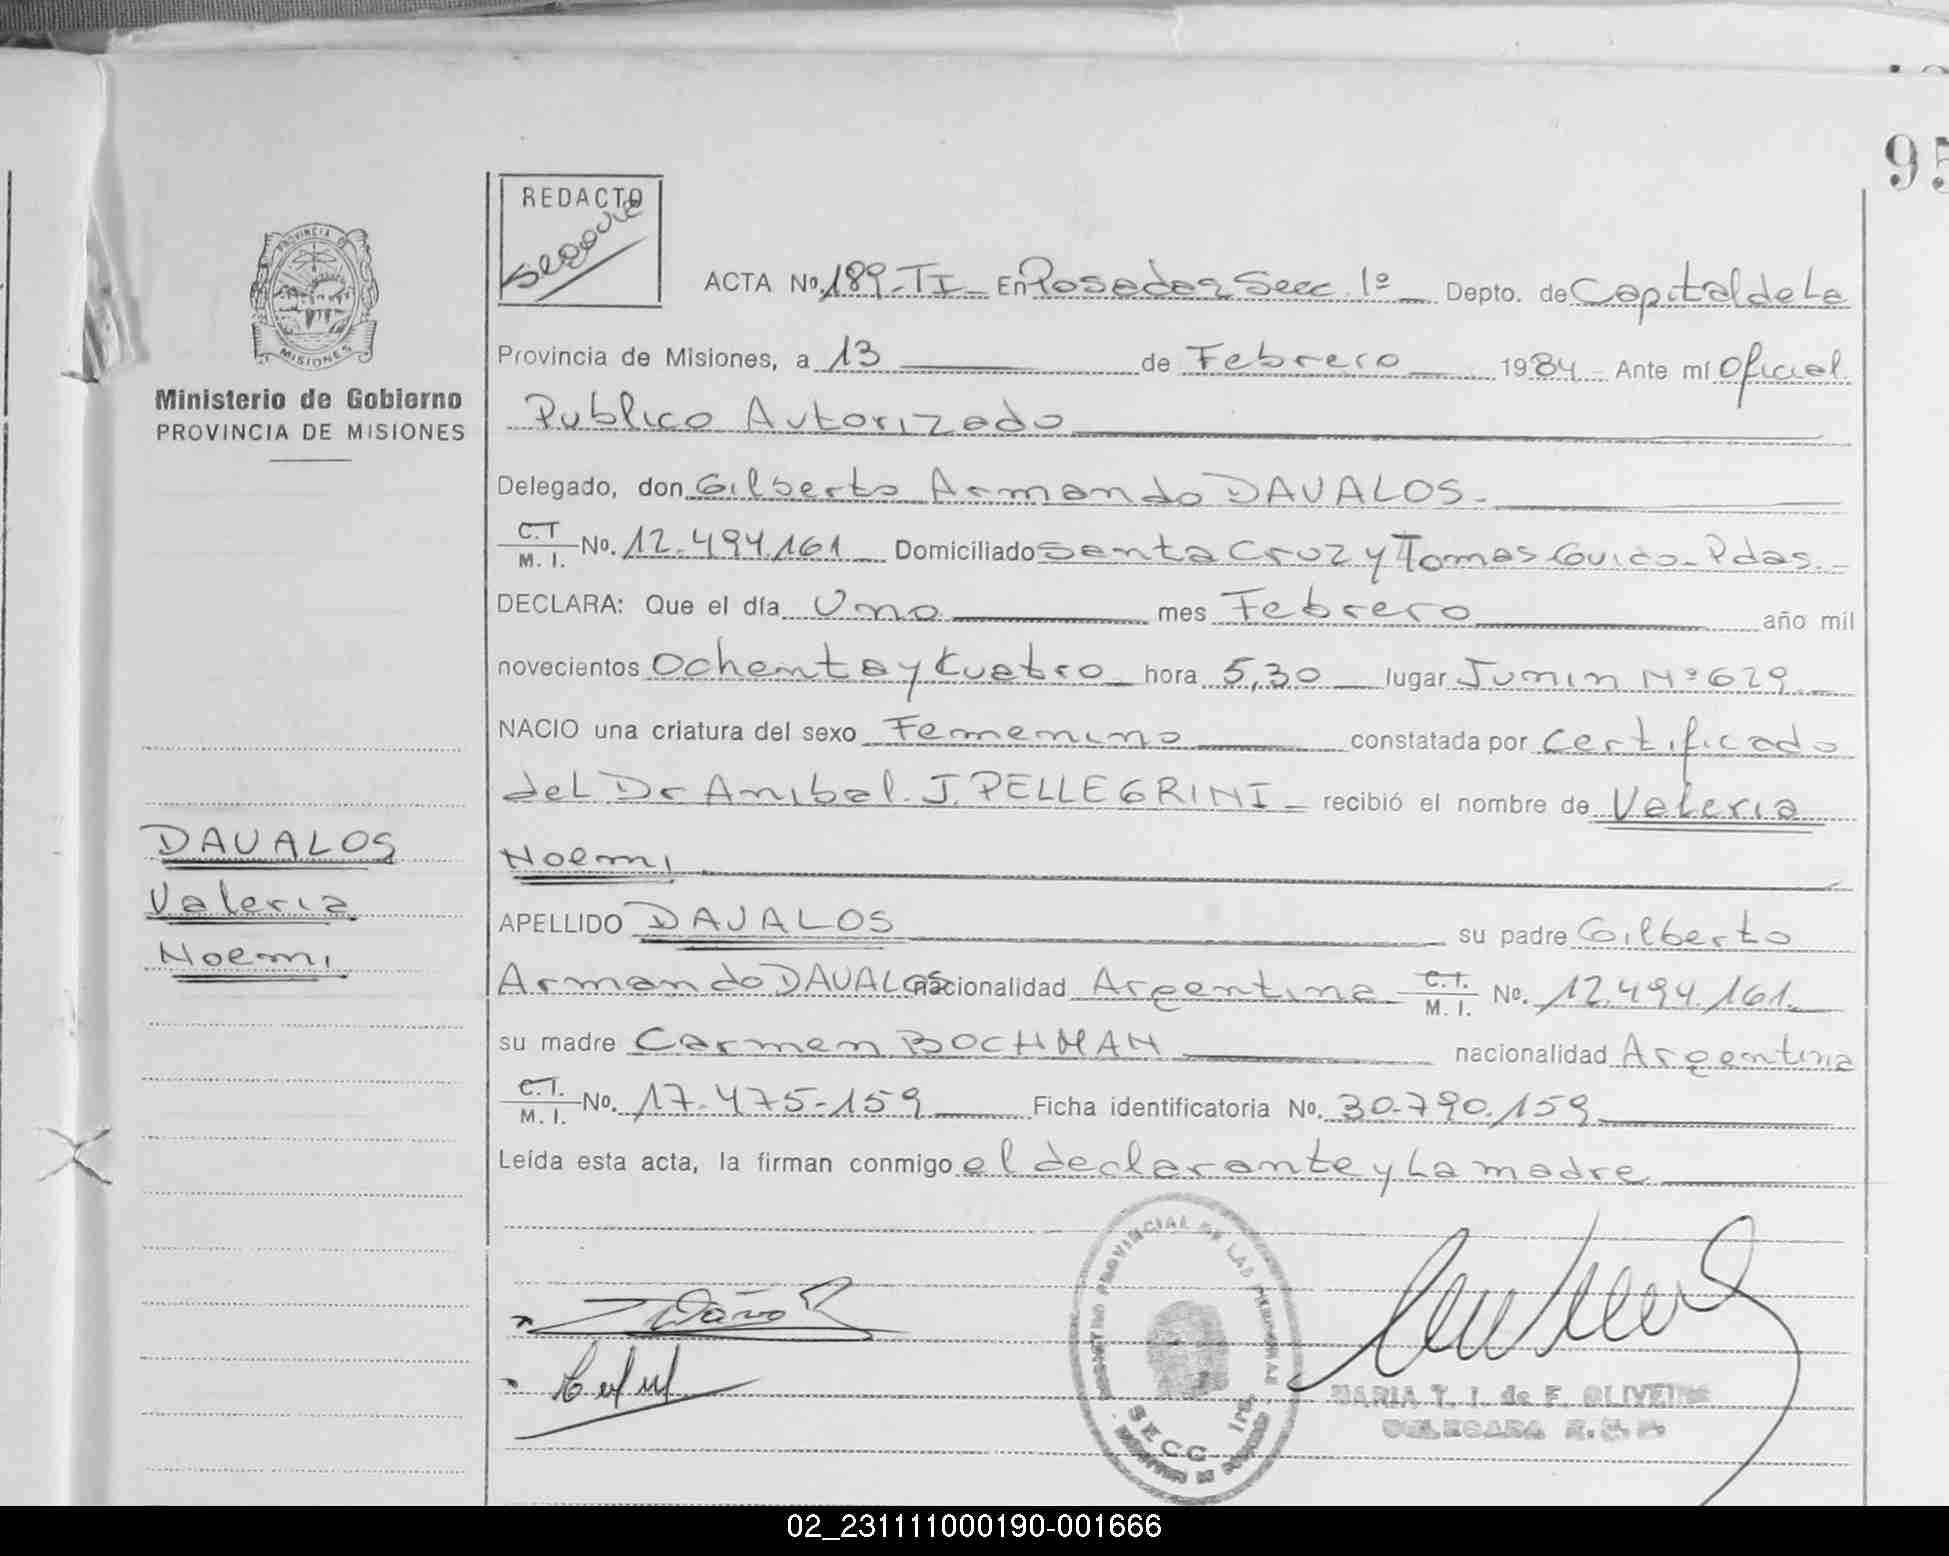 95
REDACTO
Segovie
PROVINCIA DE
MISIONES
Ministerio de Gobierno
PROVINCIA DE MISIONES
ACTA No. 189-TI- En Posadas Secc. 1º Depto. de Capital de La
Provincia de Misiones, a 13 de Febrero 1984 Ante mí Oficial
Publico Autorizado
Delegado, don Gilberto Armando DAVALOS.
C.I. M. I. No. 12.494.161 Domiciliado Santa Cruz y Tomas Guido- Pdas.-
DECLARA: Que el día Uno mes Febrero año mil
novecientos Ochenta y Cuatro hora 5,30 lugar Junin Nº 629
NACIO una criatura del sexo Femenino constatada por Certificado
del Dr Anibal. J. PELLEGRINI- recibió el nombre de Valeria
Noemi
DAVALOS
Valeria
Noemi
APELLIDO DAVALOS su padre Gilberto
Armando DAVALOS nacionalidad Argentina C.I. M. I. No. 12.494.161.
su madre Carmen BOCHMAN nacionalidad Argentina
C.I. M. I. No. 17.475-159 Ficha identificatoria No. 30.790.159
Leída esta acta, la firman conmigo el declarante y La madre
PROVINCIAL DE LAS PERSONAS
SECC 1ra.
MARIA T. I. de F. OLIVEIRA
DELEGADA R.C.P.
02_231111000190-001666